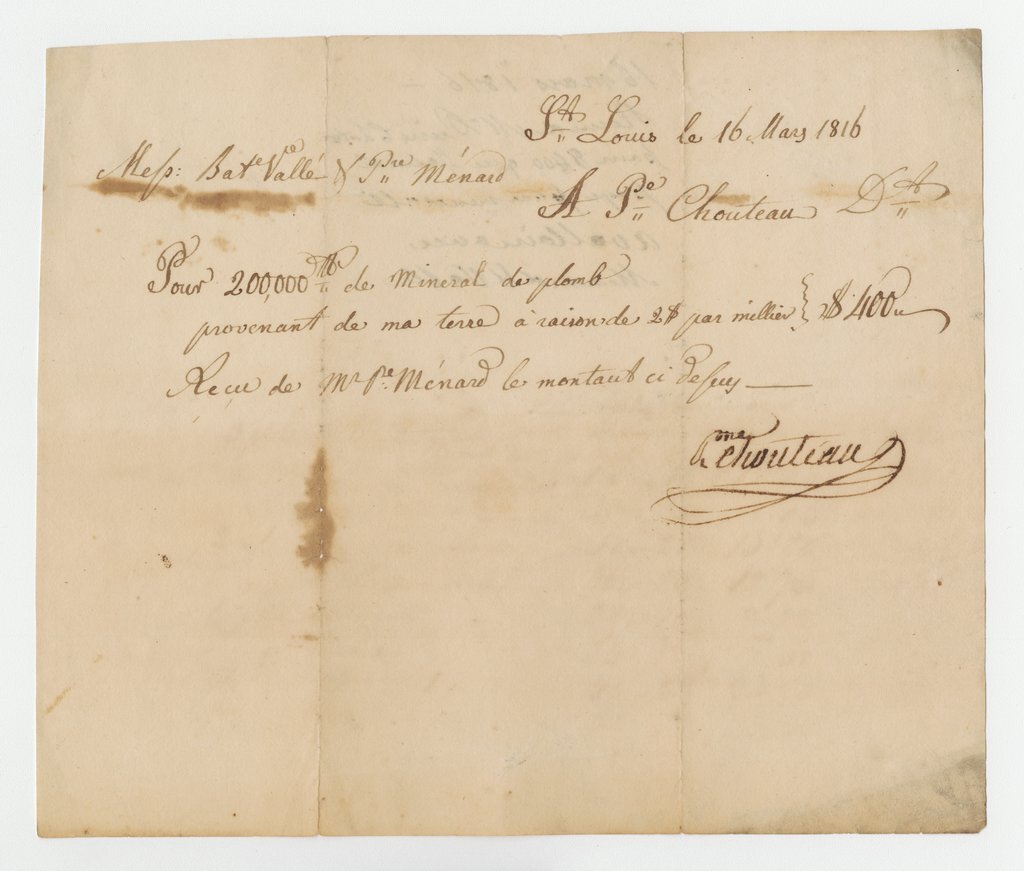 St Louis le 16 Mars 1816
Mess: Bate Vallé & Pre Ménard
A Pe Chouteau Dt
Pour 200,000 lb de Mineral de plomb
provenant de ma terre à raison de 2$ par millier } $ 400
Reçu de Mr Pre Ménard le montant ci dessus
Chouteau